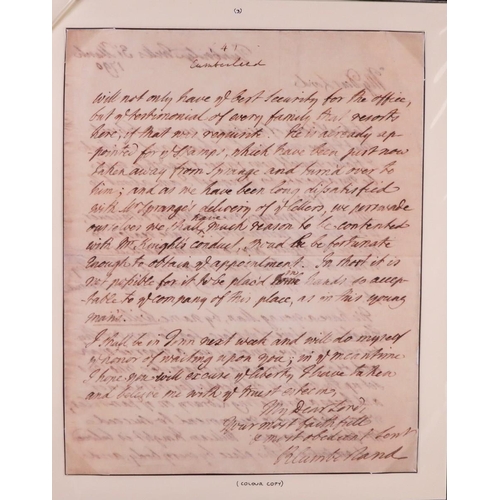 (2)
+
Cumberland
will not only have ye best security for the office,
but ye testimonial of every family that resorts
here, if that was requisite. He is already ap-
pointed for ye Stamps, which have been just now
taken away from Sprange and turn'd over to
him; and as we have been long dissatisfied
with Mr. Sprange's delivery of ye letters, we persuade
ourselves we shall have much reason to be contented
with Mr. Knight's conduct, shou'd he be fortunate
enough to obtain ye appointment. In short it is
not possible for it to be plac'd in hands so accep-
table to ye company of this place, as in this young
man's.
I shall be in Town next week and will do myself
ye honor of waiting upon you; in ye meantime
I hope you will excuse ye liberty I have taken
and believe me with ye truest esteem,
My Dear Lord
Your most faithfull
& most obedient Servt
R Cumberland
(COLOUR COPY)